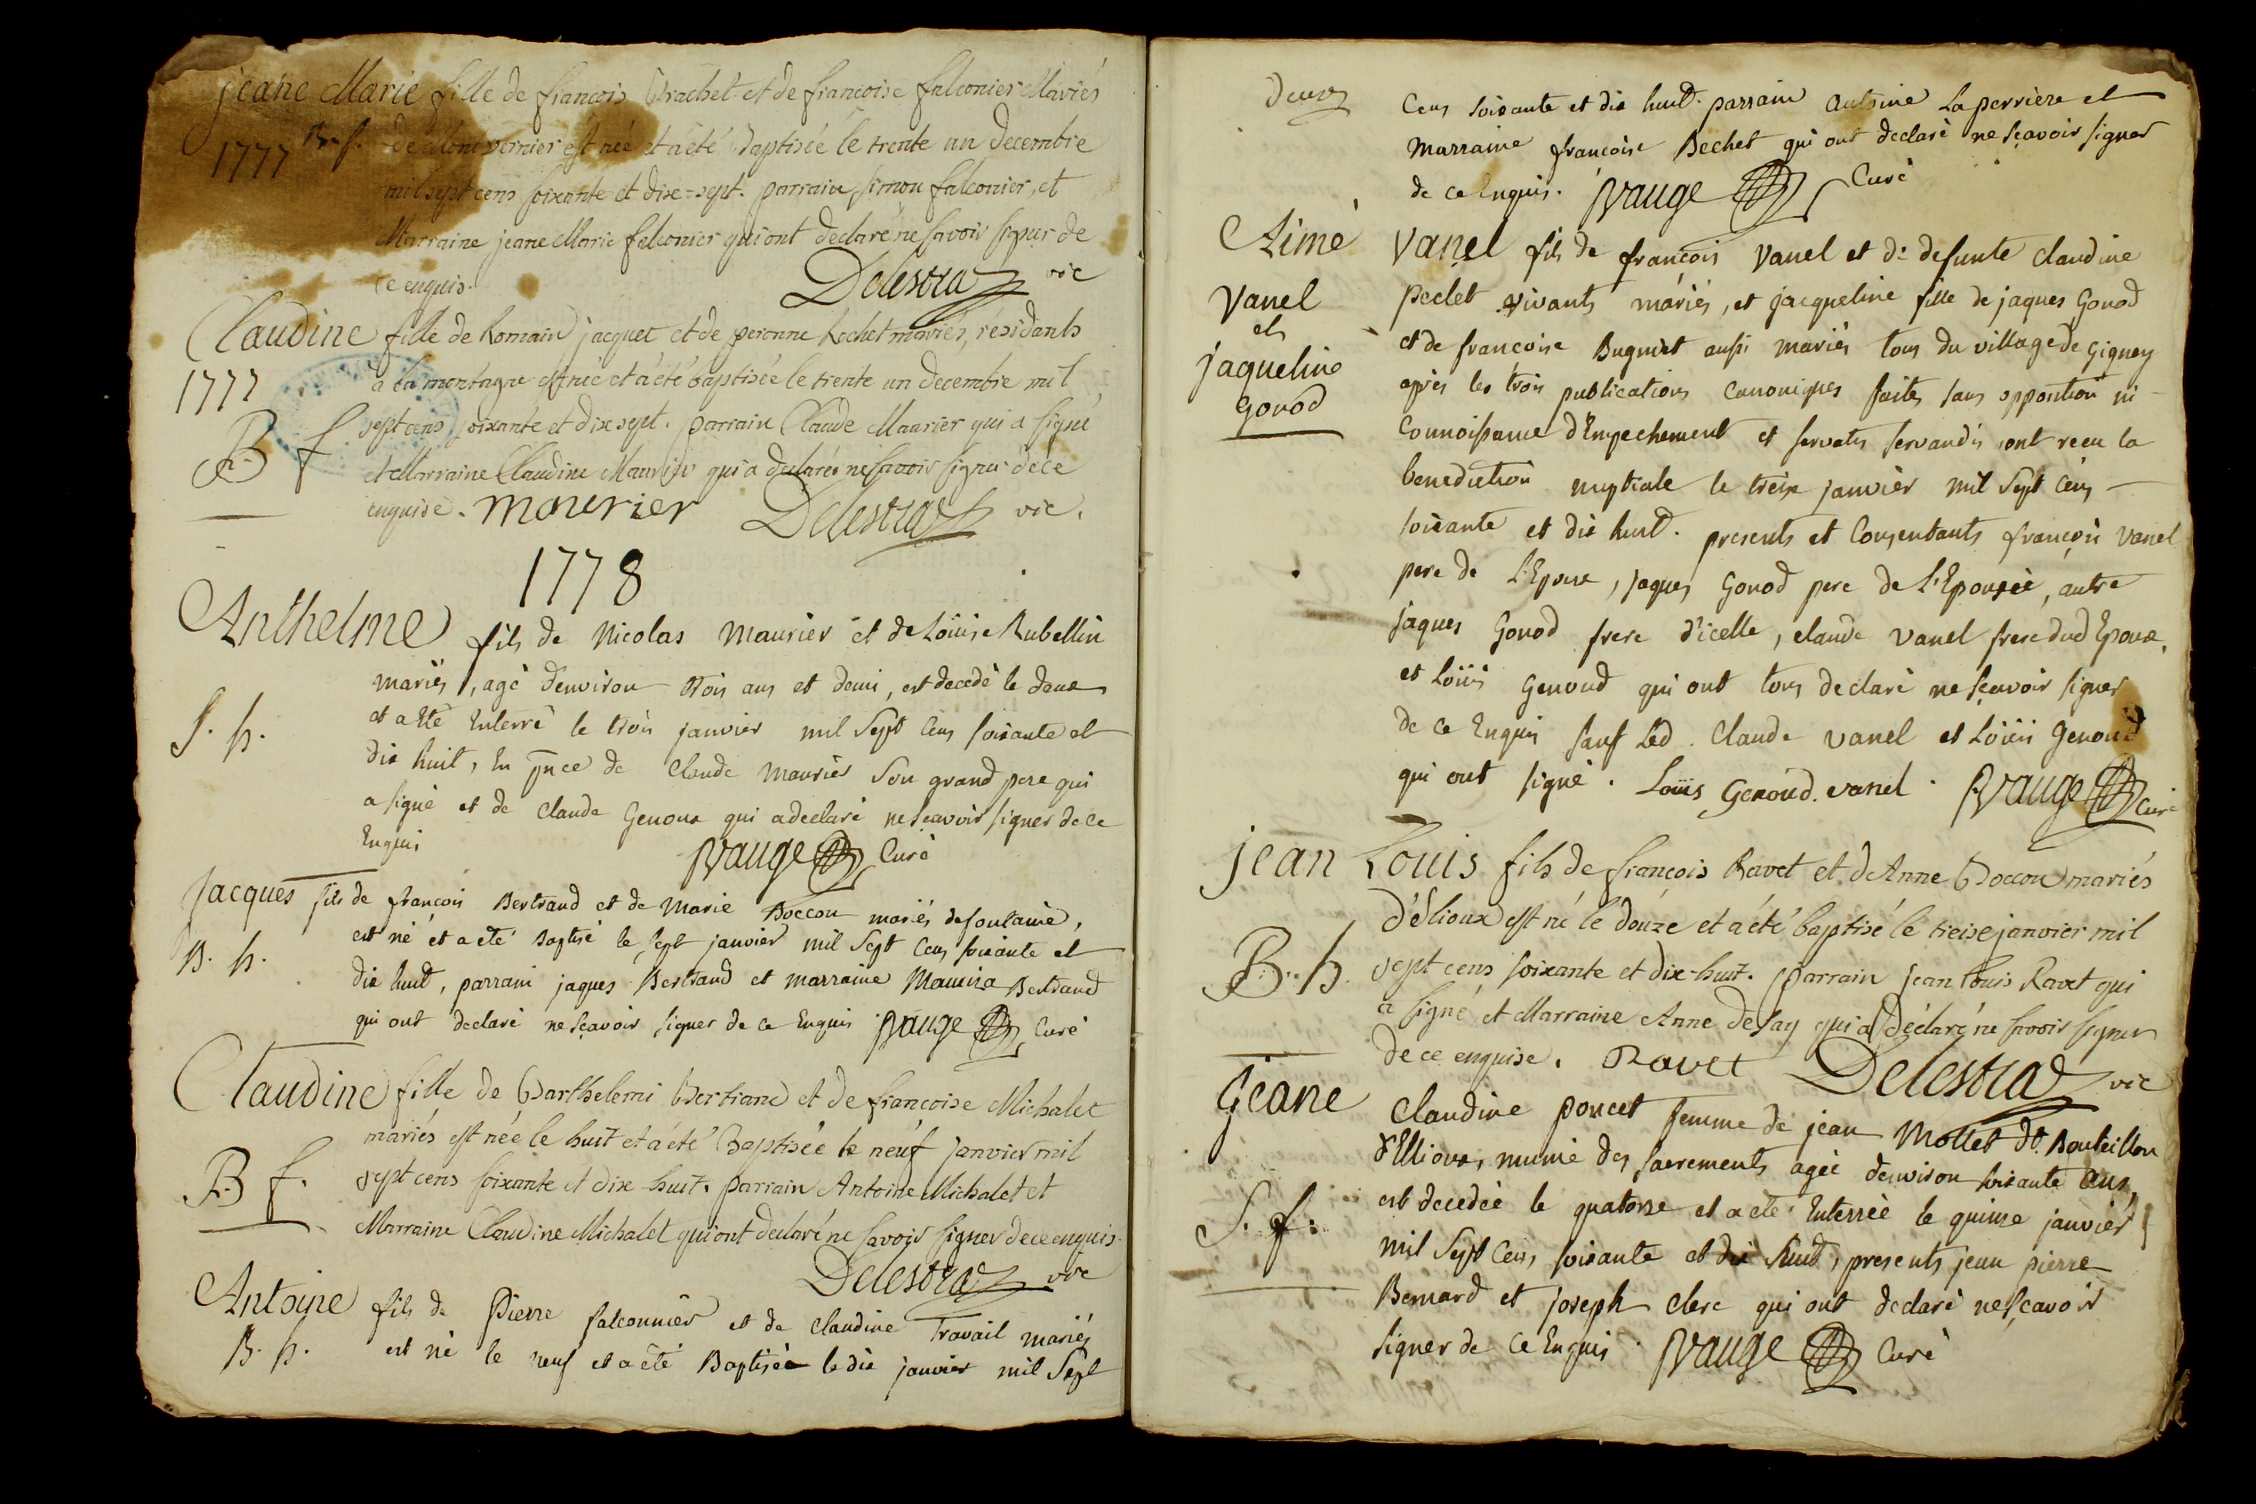 jeane Marie fille de francois Brachet et de francoise falconier Mariés
1777 B. f. de Montvernier est née et a été Baptisée le trente un decembre
mil sept cens soixante et dix-sept. parrain simon falconier, et
Marraine jeane Marie falconier qui ont declaré ne savoir signer de
ce enquis. Delestraz vic
Claudine fille de Romain jacquet et de peronne Rochet mariés, résidants
1777 à la montagne est née et a été baptisée le trente un decembre mil
B f sept cens soixante et dix sept. parrain Claude Maurier qui a signé
et Marraine Claudine Maurier qui a declarée ne savoir signer de ce
enquise. maurier Delestraz vic.
1778
Anthelme fils de Nicolas Maurier et de Loüise Rubellin
mariés, agé d'environ trois ans et demi, est decedé le deux
S. h. et a Eté Enterré le trois janvier mil Sept Cens soixante et
dix huit, En pnce de Claude Maurier Son grand pere qui
a signé et de Claude Genoux qui a declaré ne sçavoir signer de ce
Enquis pvauge Curé
Jacques fils de francois Bertrand et de Marie Boccon mariés de fontaine,
est né et a eté Baptisé le sept janvier mil Sept Cens soixante et
B. h. dix huit, parrain jaques Bertrand et marraine Mauriza Bertrand
qui ont declaré ne sçavoir signer de ce Enquis pvauge Curé
Claudine fille de Barthelemi Bertrand et de francoise Michalet
mariés est née le huit et a été Baptisée le neuf janvier mil
B f. sept cens soixante et dix huit. parrain Antoine Michalet et
Marraine Claudine Michalet qui ont declaré ne savoir signer de ce enquis.
Delestraz vic
Antoine fils de Pierre falconnier et de Claudine Travail mariés
B. h. est né le neuf et a été Baptisée le dix janvier mil Sept
deux Cens soixante et dix huit. parrain Antoine Laperrière et
Marraine francoise Bechet qui ont declaré ne sçavoir signer
de ce Enquis. pvauge Curé
Aimé Vanel fils de francois Vanel et de defunte Claudine
Vanel peclet vivants mariés, et jacqueline fille de jaques Gonod
et et de francoise Bugniet aussi mariés tous du village de Gigney
jaqueline après les trois publications Canoniques faites sans opposition ni
Gonod Connoissance d'Empechement et servatis servandis ont recu la
benediction nuptiale le treize janvier mil Sept Cens
soixante et dix huit. presents et Consentants francois Vanel
pere de L'Epoux, jaques Gonod pere de L'Epousée, autre
jaques Gonod frere d'icelle, claude vanel frere dud Epoux,
et Loüis Genoud qui ont tous declaré ne sçavoir signer
de ce Enquis sauf Led. Claude vanel et Loüis Genoud
qui ont signé. Loüis Genoud. vanel. pvauge Curé
jean Louis fils de francois Ravet et d'Anne Boccon mariés
d'élioux est né le douze et a été baptisé le treise janvier mil
B. h. sept cens soixante et dix-huit. parrain jean louis Ravet qui
a signé et Marraine Anne defay qui a déclaré ne savoir signer
de ce enquise. Ravet Delestraz vic
Jeane Claudine poncet femme de jean Mollet dt. Bouteillon
d'Ellioux, munie des sacrements agée d'environ soixante ans,
S. f. est decedée le quatorze et a eté Enterrée le quinze janvier
mil Sept Cens soixante et dix huit, presents jean pierre
Bernard et joseph Clerc qui ont declaré ne sçavoir
signer de ce Enquis. pvauge Curé